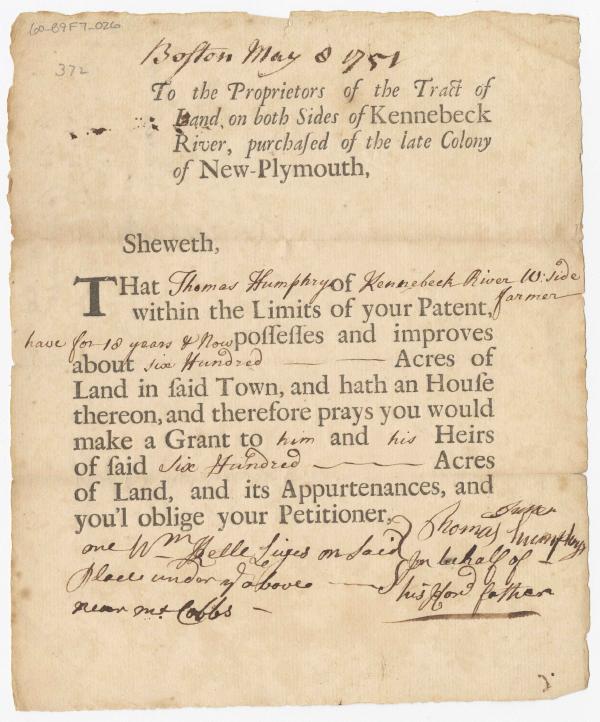 60-B9F7-026
372
Boston May 8 1751
To the Proprietors of the Tract of
Land, on both Sides of Kennebeck
River, purchaſed of the late Colony
of New-Plymouth,
Sheweth,
THat Thomas Humphrys of Kennebeck River W: side
within the Limits of your Patent, farmer
have for 18 years & Now poſſeſſes and improves
about six Hundred Acres of
Land in ſaid Town, and hath an Houſe
thereon, and therefore prays you would
make a Grant to him and his Heirs
of ſaid Six Hundred Acres
of Land, and its Appurtenances, and
you'l oblige your Petitioner,
Thomas Humphrys
one Wm Kelle Lives on Said
Place under ye above
near mr Cobbs
In behalf of
his Hond father